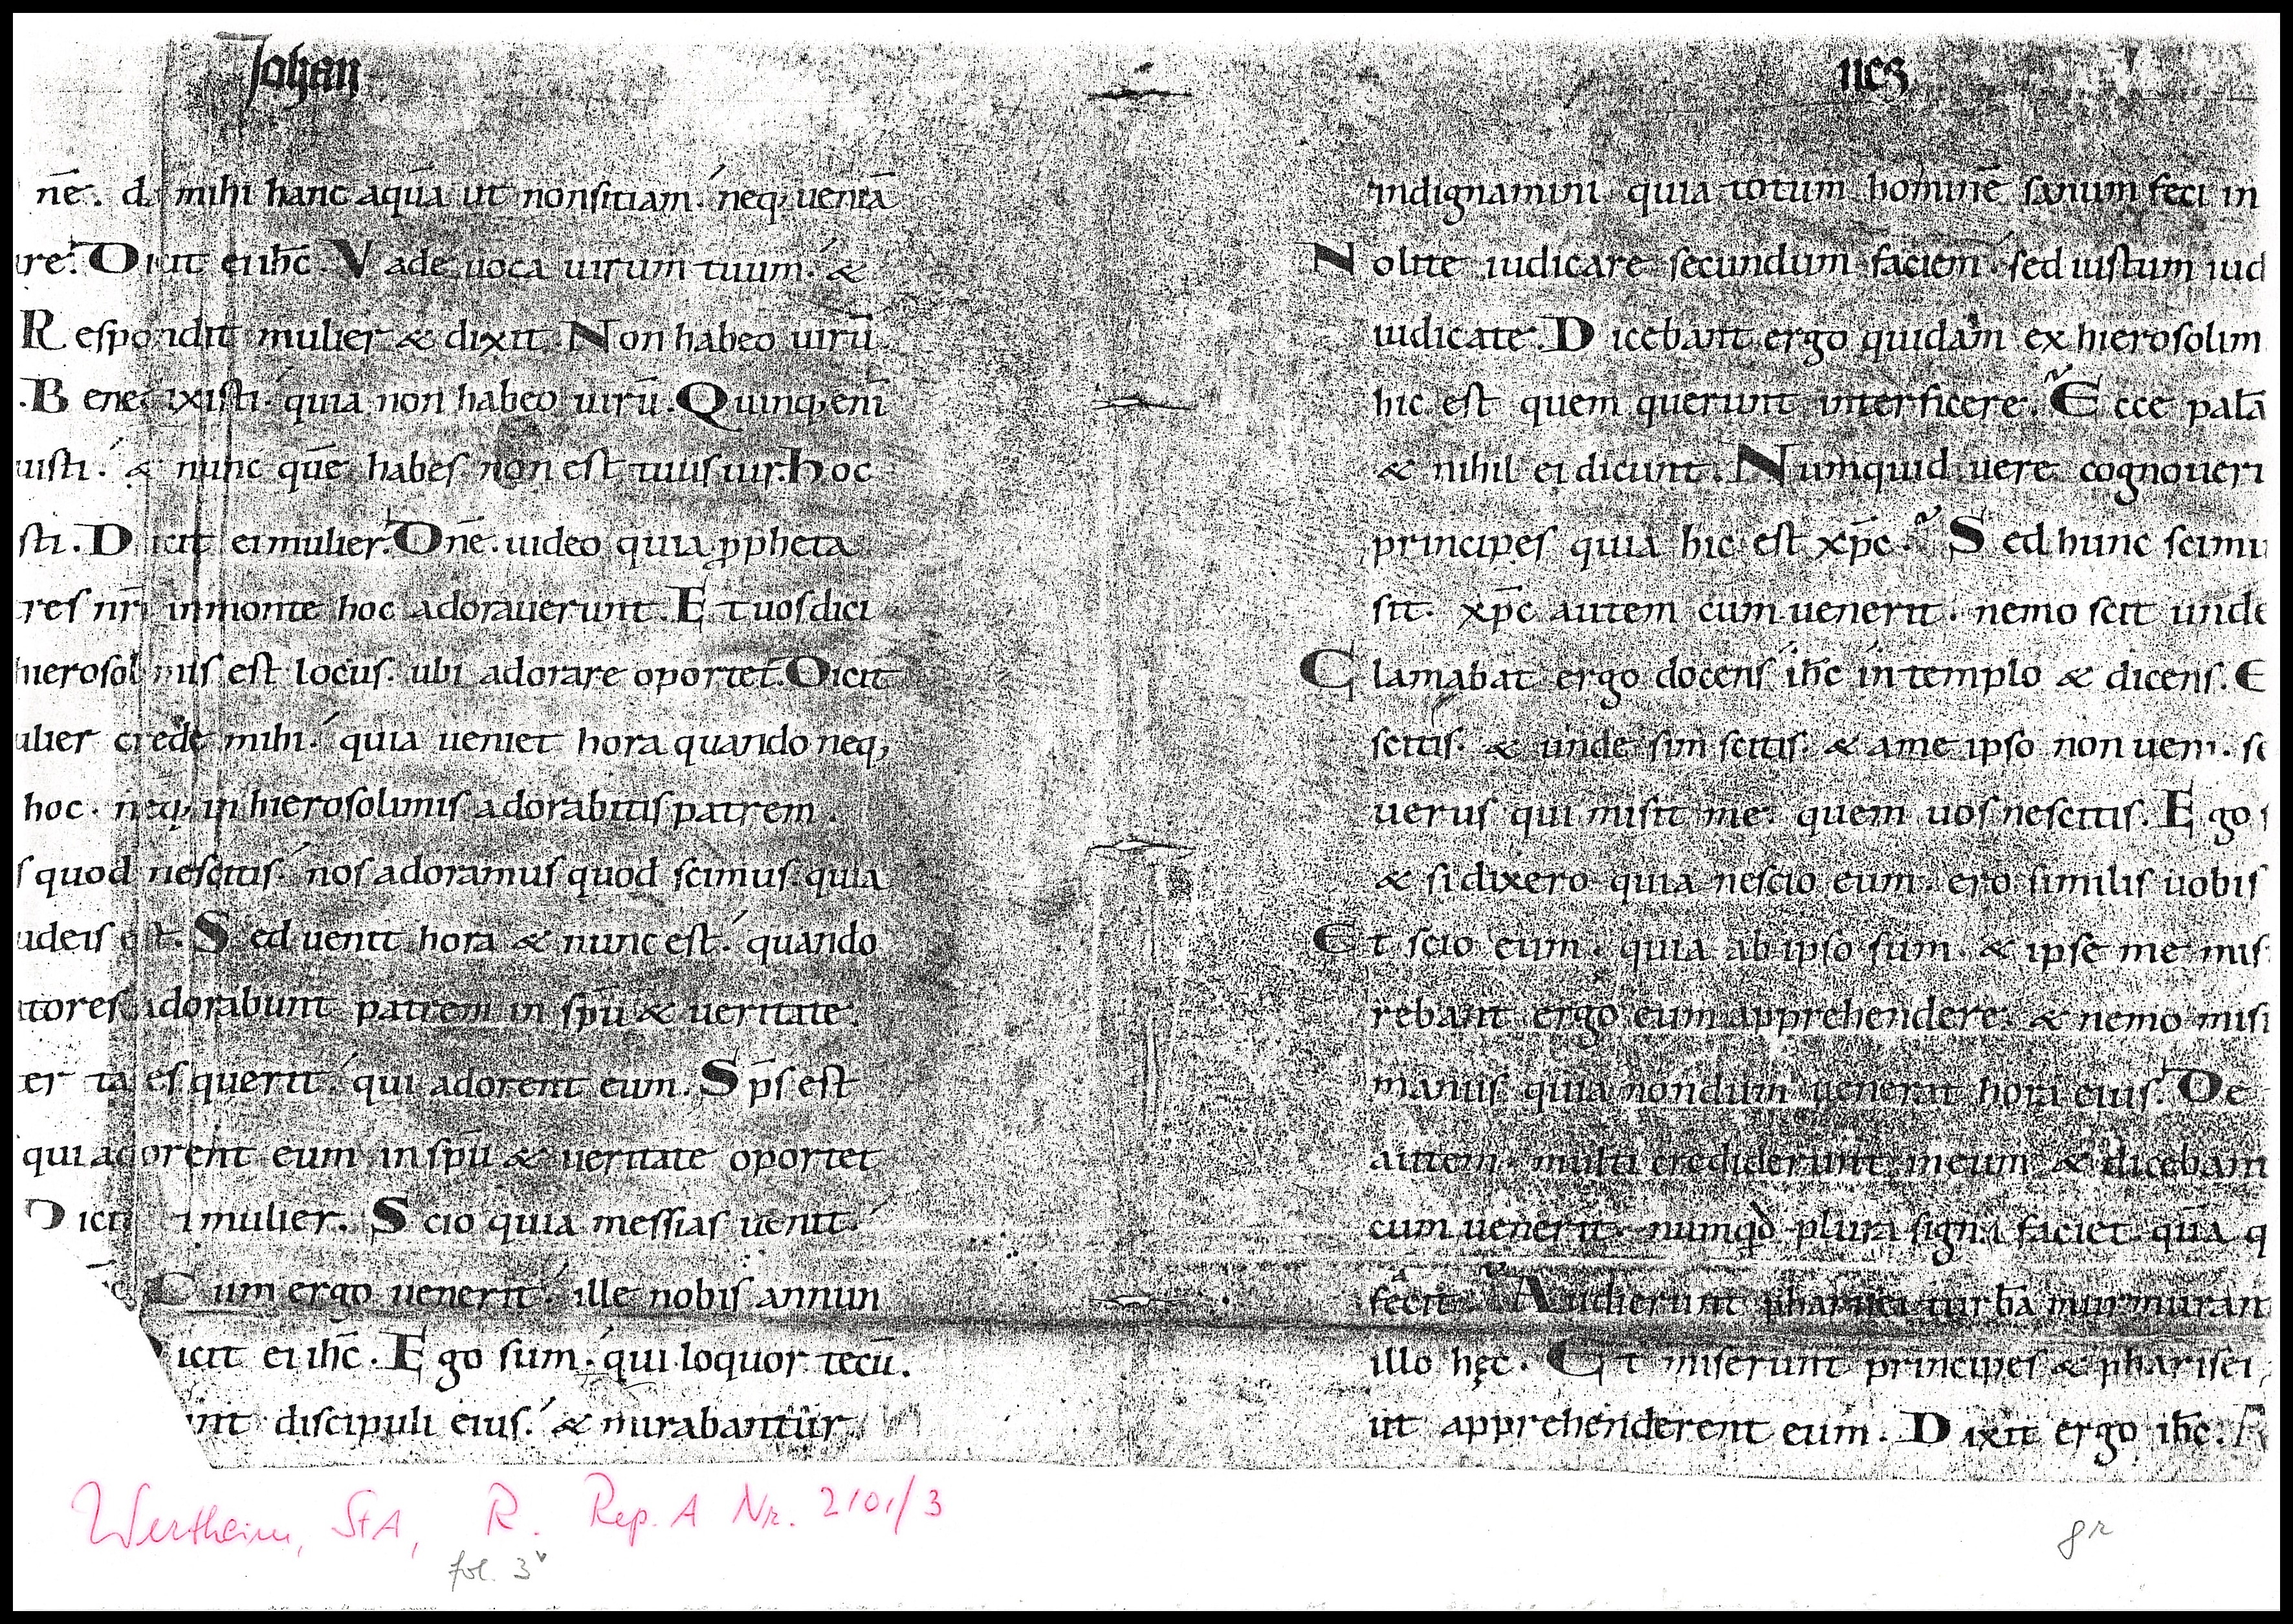 Johan
nē. d mihi hanc aquā ut non sitiam. neq; ueniā
re. Dicit ei ih̄c. Vade uoca uirum tuum. &
Respondit mulier & dixit. Non habeo uirū.
. Bene ixisti. quia non habeo uirū. Quinq; enī
uisti. & nunc quē habes non est tuus uir. hoc
sti. Dicit ei mulier. Dn̄e. uideo quia ꝓpheta
res nr̄i in monte hoc adorauerunt. Et uos dici
hierosol mis est locus. ubi adorare oportet. Dicit
ulier crede mihi. quia ueniet hora quando neq;
hoc. neq; in hierosolimis adorabitis patrem.
s quod nescitis. nos adoramus quod scimus. quia
udeis est. Sed uenit hora & nunc est. quando
tores adorabunt patrem in sp̄u & ueritate.
er ta es querit. qui adorent eum. Sp̄s est
qui adorent eum in sp̄u & ueritate oportet
Dicit i mulier. Scio quia messias uenit.
Cum ergo uenerit. ille nobis annun
icit ei ih̄c. Ego sum. qui loquor tecū.
unt discipuli eius. & mirabantur
nes
indignamini quia totum hominē sanum feci in
Nolite iudicare secundum faciem. sed iustum iud
iudicate. Dicebant ergo quidam ex hierosolim
hic est quem querunt interficere. Ecce palā
& nihil ei dicunt. Numquid uere cognoueri
principes quia hic est xp̄c. Sed hunc scimu
sit. xp̄c autem cum uenerit. nemo scit unde
Clamabat ergo docens ih̄c in templo & dicens. E
scitis. & unde sim scitis. & a me ipso non ueni. se
uerus qui misit me. quem uos nescitis. Ego s
& si dixero quia nescio eum. ero similis uobis
Et scio eum. quia ab ipso sum. & ipse me mis
rebant ergo eum apprehendere. & nemo misi
manus quia nondum uenerat hora eius. De
autem multi crediderunt in eum & dicebant
cum uenerit. numqd plura signa faciet quā q
fecit. Audierunt pharisei turbā murmurant
illo hęc. Et miserunt principes & pharisei
ut apprehenderent eum. Dixit ergo ih̄c.
Wertheim, StA, R. Rep. A Nr. 2101/3
fol. 3v
gr